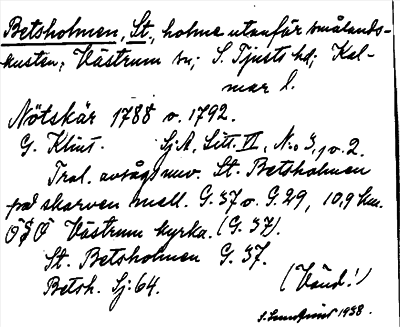 Betsholmen, St., holme utanför smålands-
kusten; Västrum sn; S. Tjusts hd; Kal-
mar l.
Nötskär 1788 o. 1792.
G. Klint. Sj.A, Litt. VI, No 3, o. 2.
Trol. avsågs nuv. St. Betsholmen
på skarven mell. G. 37 o. G. 29, 10,9 km.
ÖSÖ Västrum kyrka. (G. 37).
St. Betsholmen G. 37.
Betsh. Sj: 64.
(Vänd!)
1938.